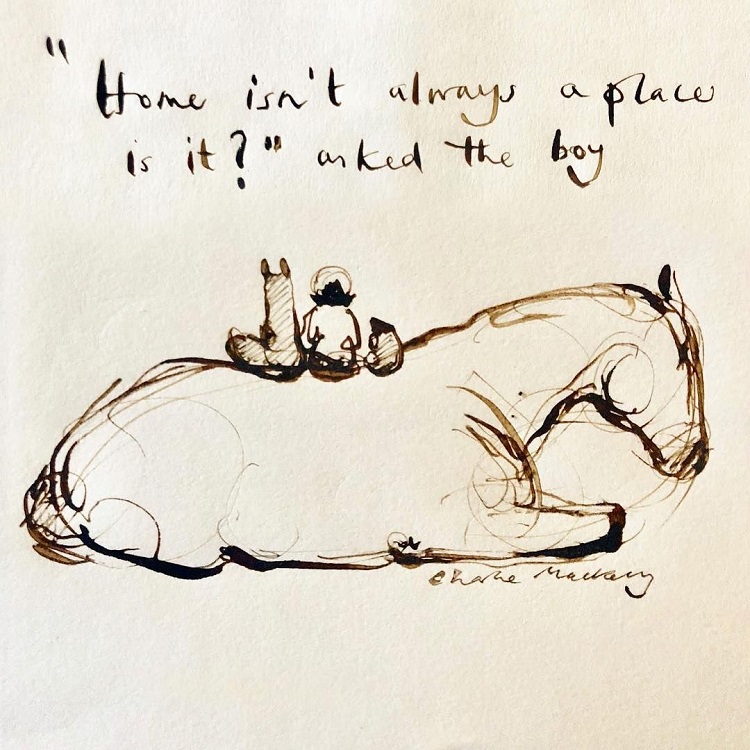 "Home isn't always a place
is it?" asked the boy
Charlie Mackesy